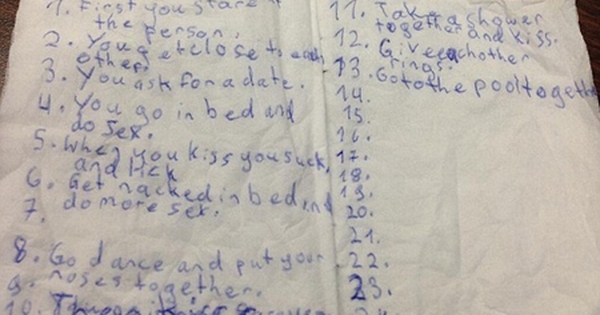 1. First you stare
the person.
2. You get close to each
other.
3. You ask for a date.
4. You go in bed and
do sex.
5. When you kiss you suck
and lick
6. Get nacked in bed and
7. do more sex.
8. Go dance and put your
9. noses together.
10.
11. Take a shower
together and kiss.
12. Give eachother
rings.
13. Go to the pool together
14.
15.
16.
17.
18.
19.
20.
21.
22.
23.